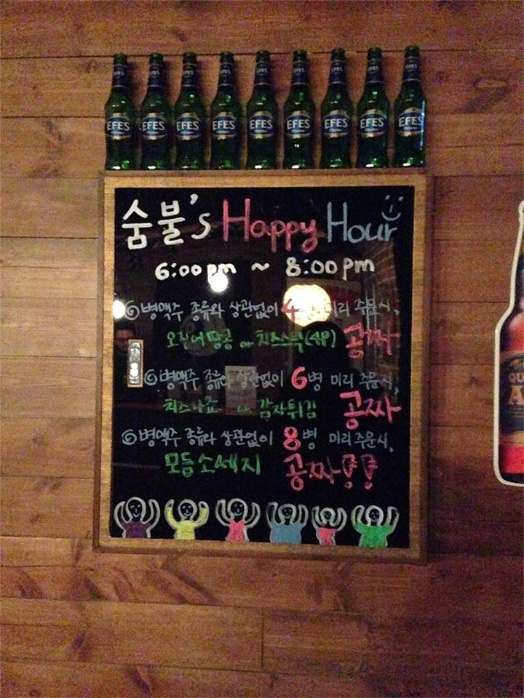 EFES EFES EFES EFES EFES EFES EFES EFES EFES
숨불's Happy Hour
6:00pm ~ 8:00pm
병맥주 종류와 상관없이 4 미리 주문시,
오징어땅콩 or 치즈스틱(4P) 공짜
병맥주 종류와 상관없이 6병 미리 주문시,
치즈나쵸 or 감자튀김 공짜
병맥주 종류와 상관없이 8병 미리주문시,
모듬소세지 공짜!!